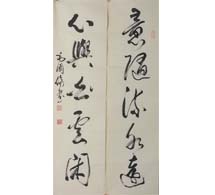 意隨流水遠
心與白雲閑